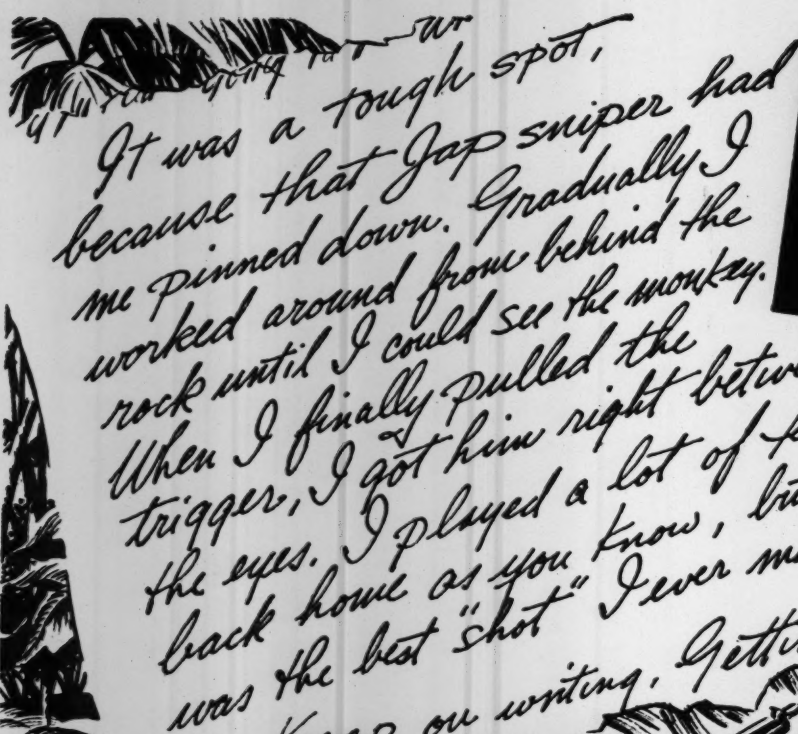 It was a tough spot,
because that Jap sniper had
me pinned down. Gradually I
worked around from behind the
rock until I could see the monkey.
When I finally pulled the
trigger, I got him right betw
the eyes. I played a lot of
back home as you know, bu
was the best "shot" I ever m
on writing. Getti